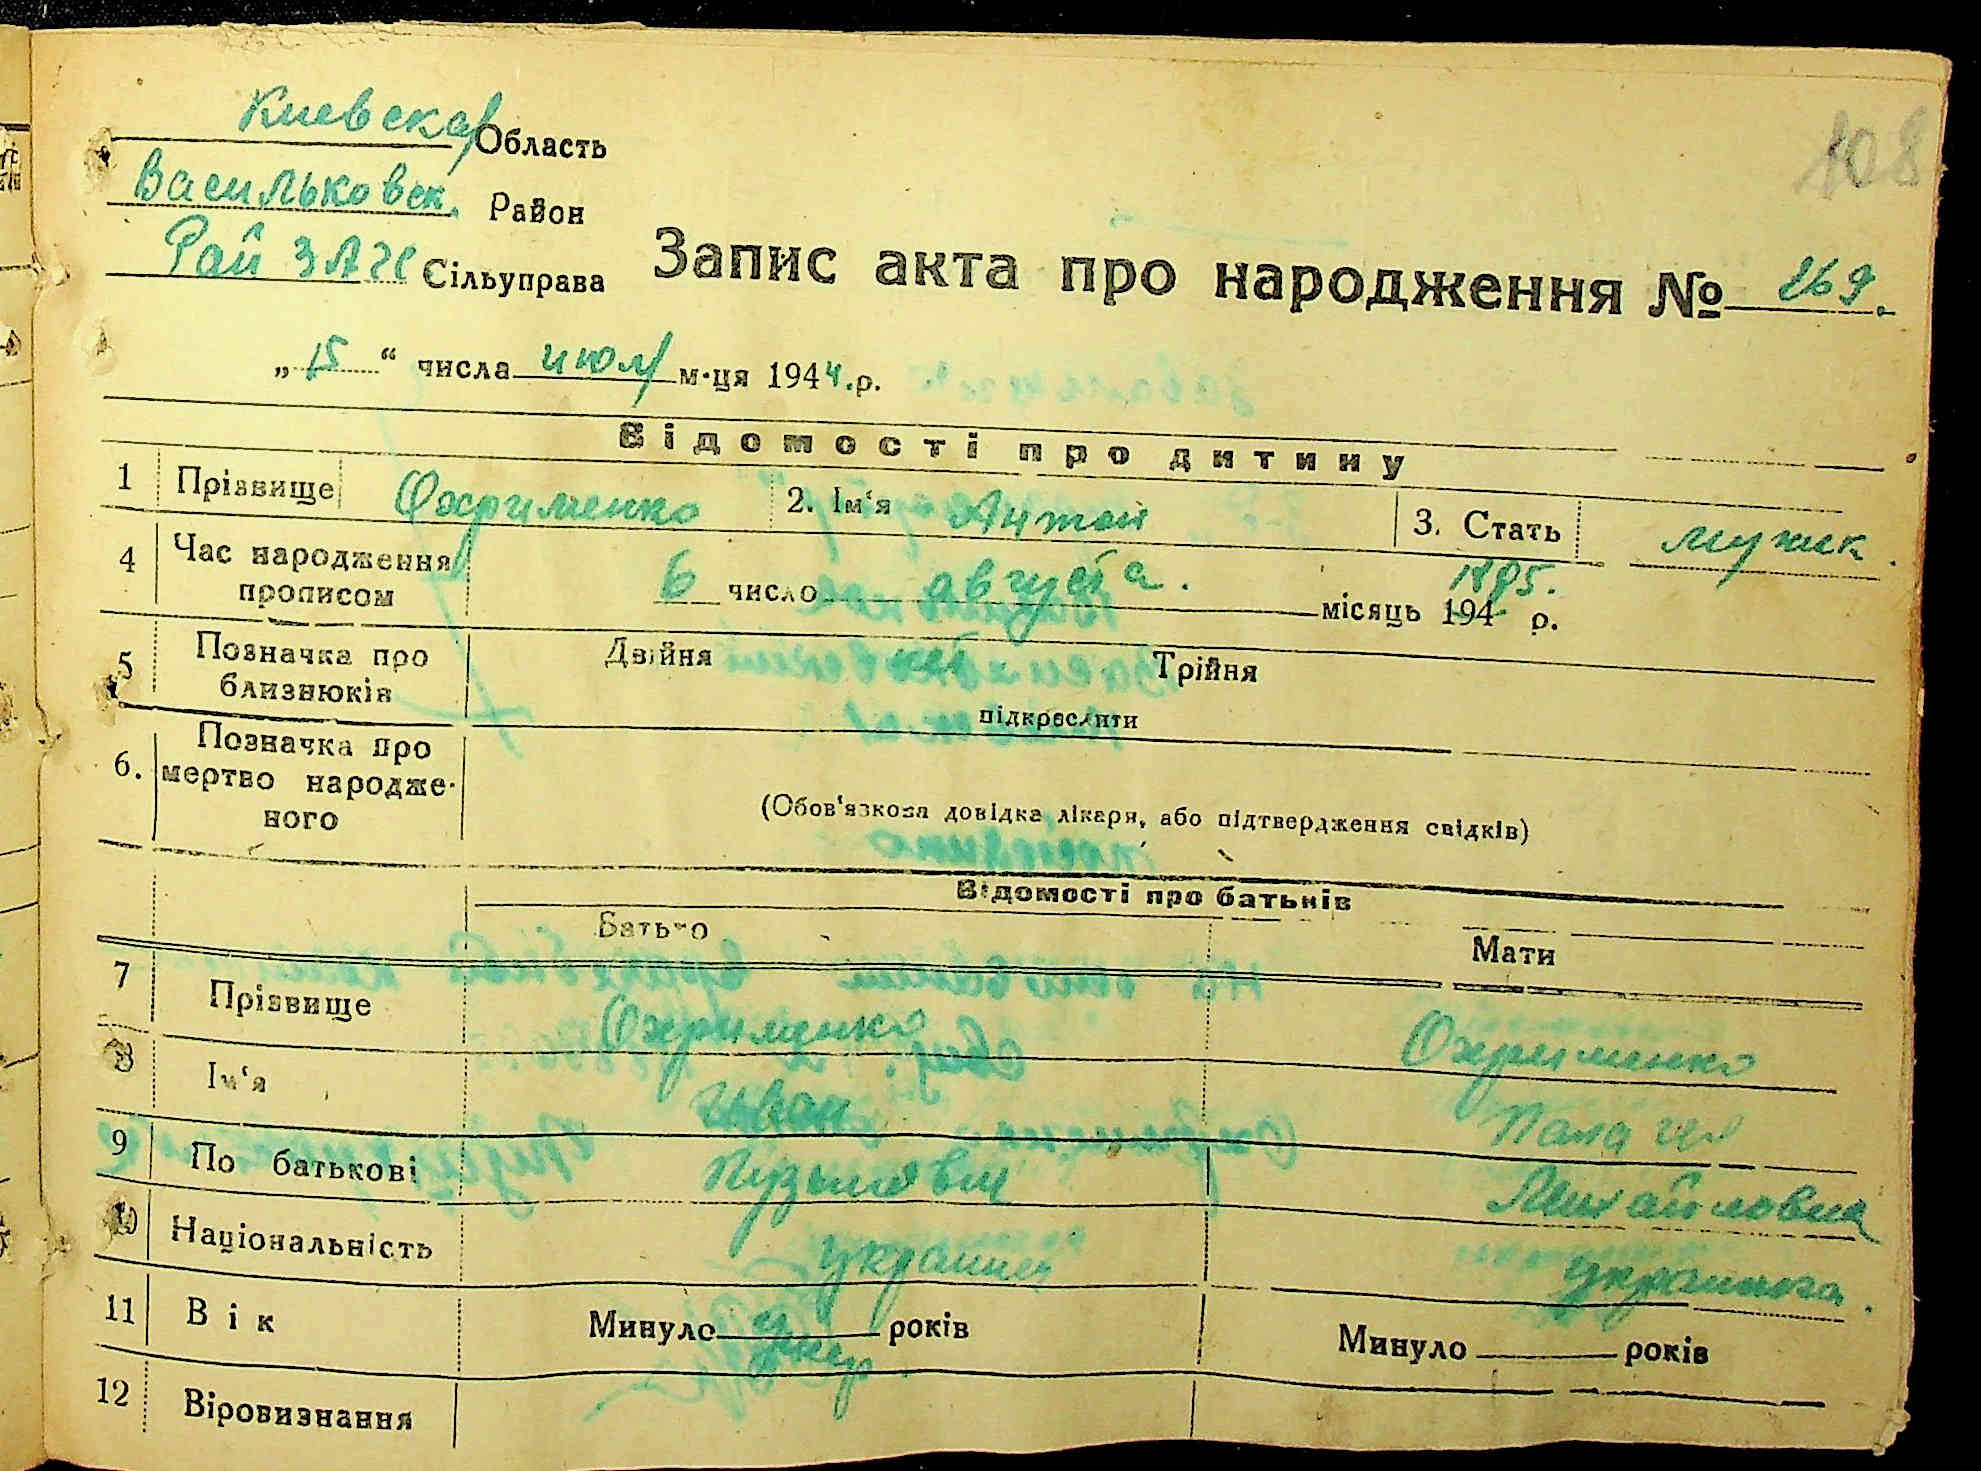 108
Киевская Область
Васильковск. Район
Рай ЗАГС Сільуправа
Запис акта про народження № 269.
„15“ числа июля м-ця 1944.р.
Відомості про дитину
1 Прізвище Охрименко 2. Ім'я Антон 3. Стать мужск.
4 Час народження прописом 6 число августа. місяць 194 1895. р.
5 Позначка про близнюків Двійня нет Трійня
підкреслити
6. Позначка про мертво народже-
ного
(Обов'язкова довідка лікаря, або підтвердження свідків)
Відомості про батьків
Батько Мати
7 Прізвище Охрименко Охрименко
8 Ім'я Иван Палагея
9 По батькові Кузьмович Михайловна
10 Національність украинец украинка.
11 Вік Минуло умер. років Минуло років
12 Віровизнання